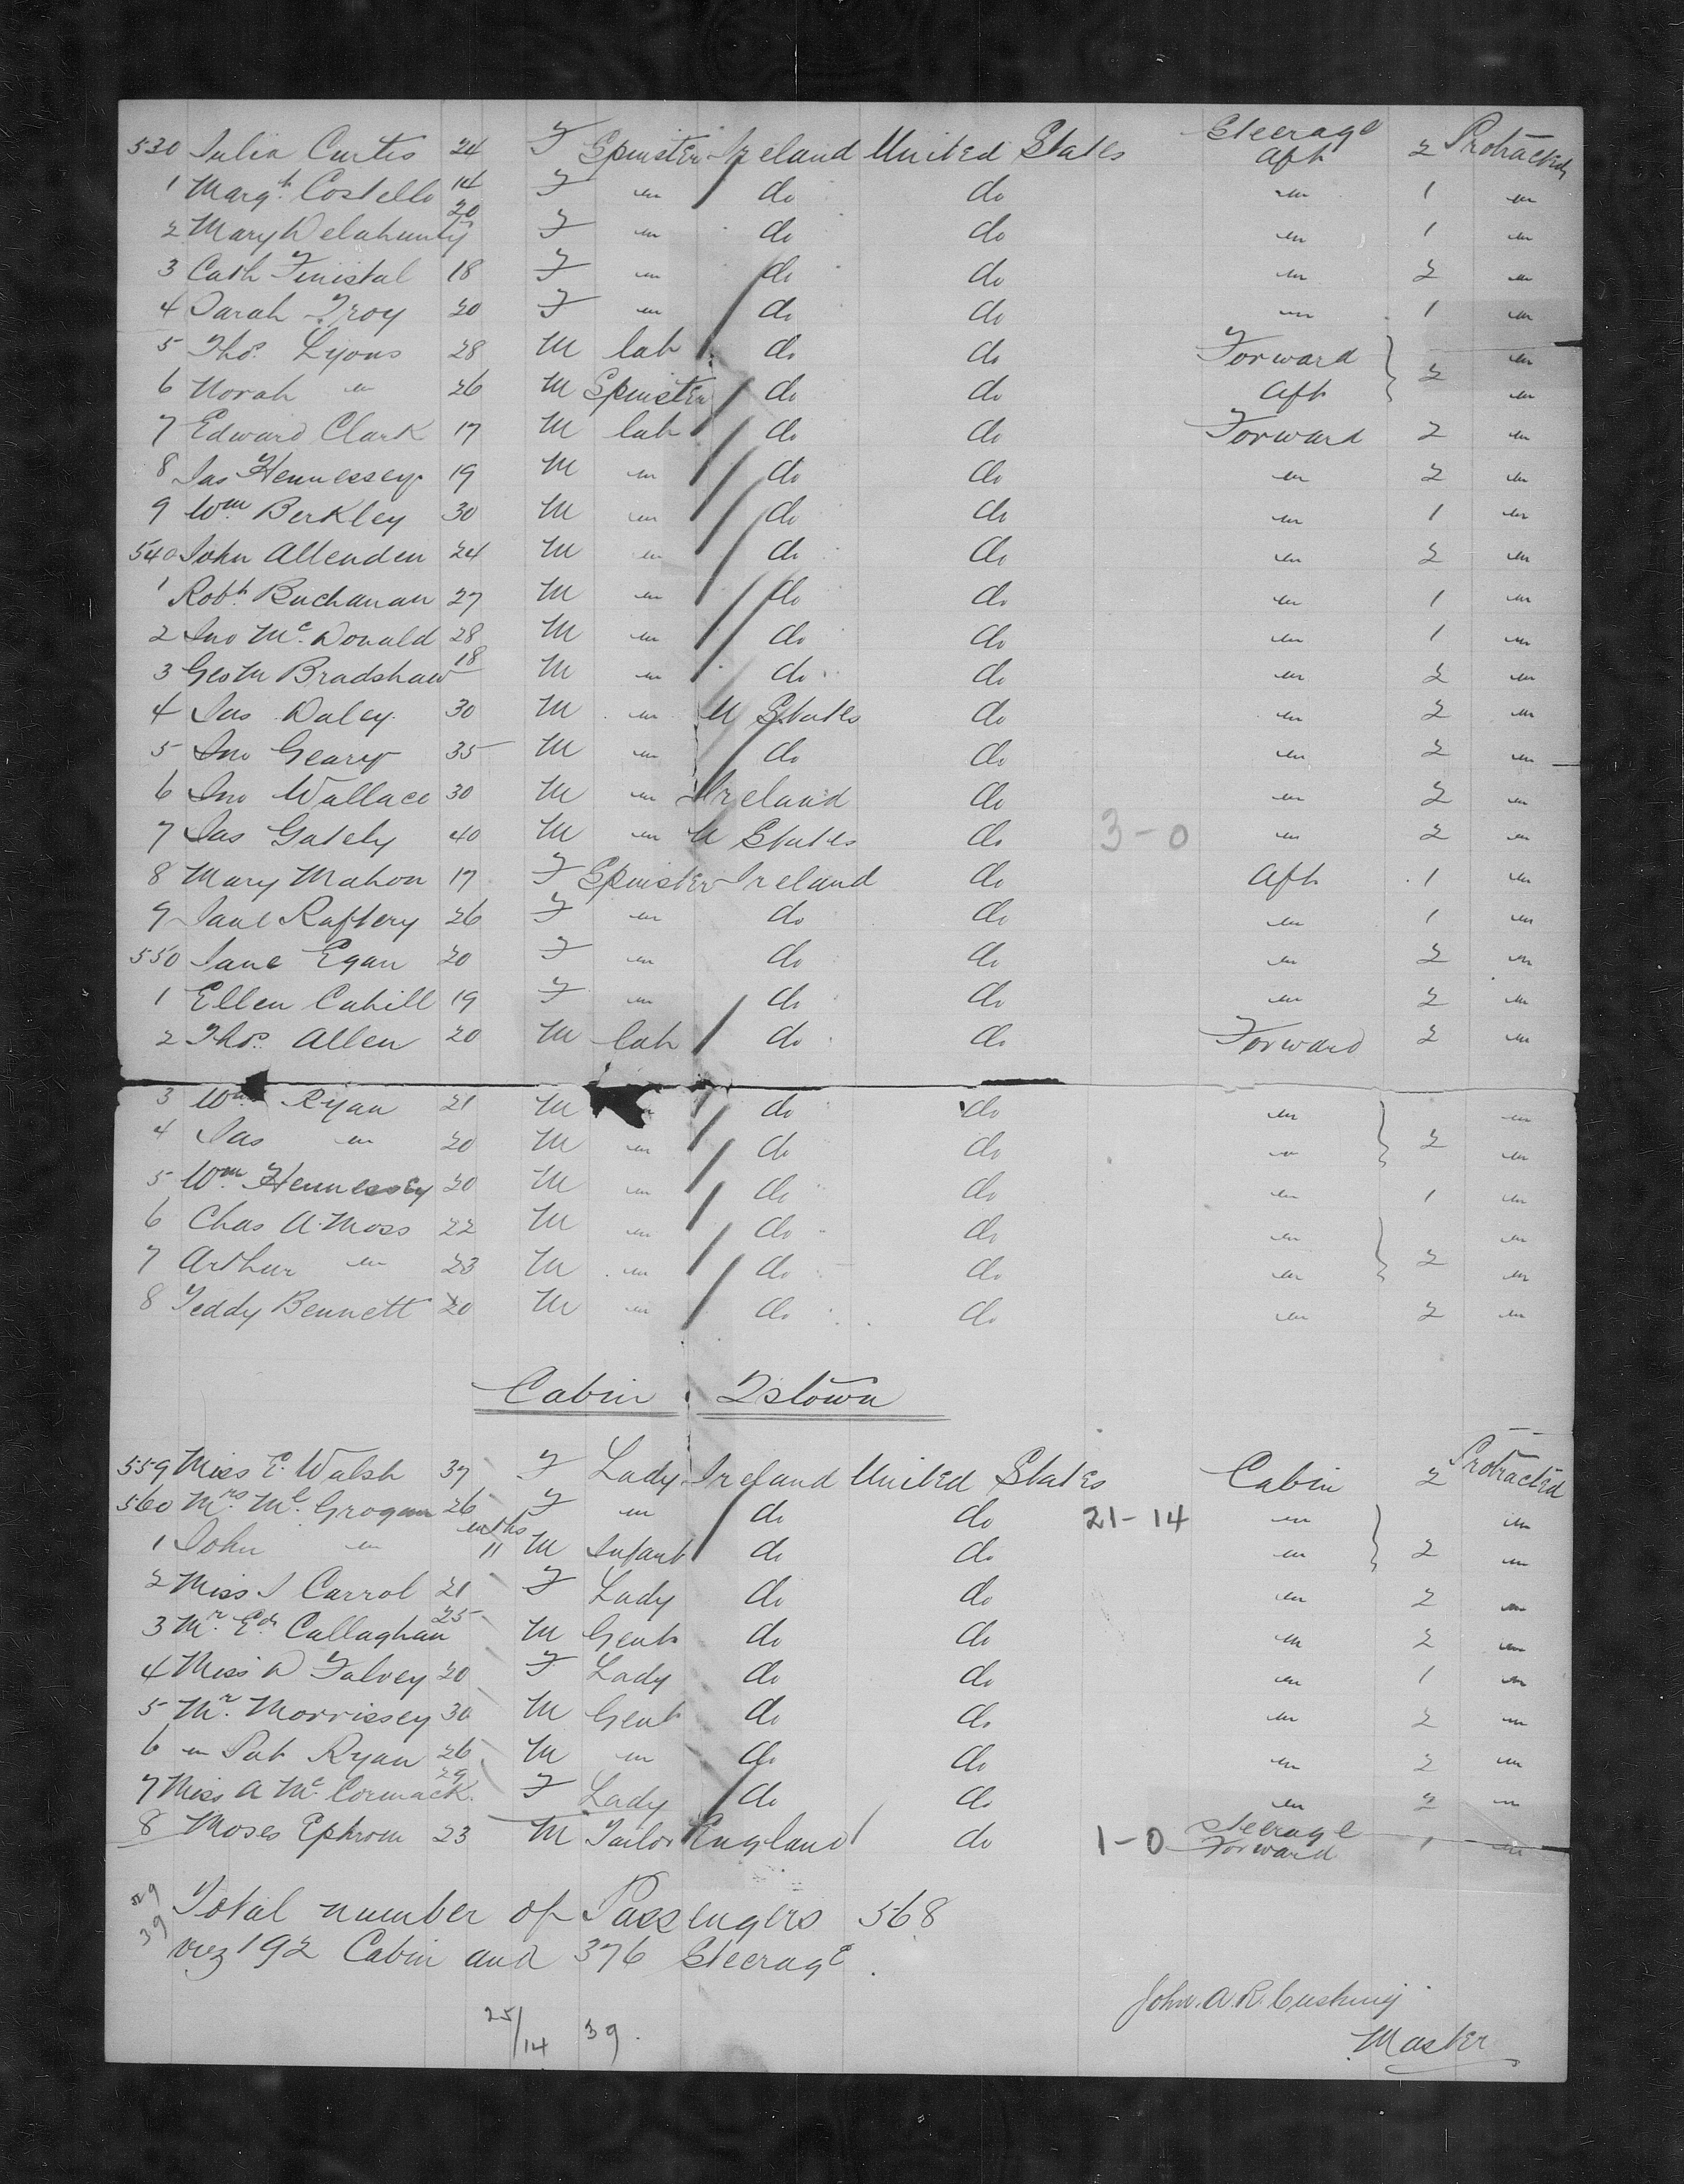 530 Julia Curtis 24 F Spinster Ireland United States Steerage Aft 2 Protracted
1 Margt. Costello 14 F " do do " 1 "
2 Mary Delahunty 20 F " do do " 1 "
3 Cath 18 F " do do " 2 "
4 Sarah Troy 20 F " do do " 1 "
5 Thos. Lyons 28 M lab do do Forward } 2 "
6 Norah " 26 M Spinster do do Aft "
7 Edward Clark 17 M lab do do Forward 2 "
8 Jas Hennessey 19 M " do do " 2 "
9 Wm Berkley 30 M " do do " 1 "
540 John Allenden 24 M " do do " 2 "
1 Robt. Buchanan 27 M " do do " 1 "
2 Jno Mc. Donald 28 M " do do " 1 "
3 Geo M Bradshaw 18 M " do do " 2 "
4 Jas Daley 30 M " U States do " 2 "
5 Jno Geary 35 M " do do " 2 "
6 Jno Wallace 30 M " Ireland do " 2 "
7 Jas Gately 40 M " U States do 3-0 " 2 "
8 Mary Mahon 17 F Spinster Ireland do Aft 1 "
9 Jane Raftery 26 F " do do " 1 "
550 Jane Egan 20 F " do do " 2 "
1 Ellen Cahill 19 F " do do " 2 "
2 Thos. Allen 20 M lab do do Forward 2 "
3 Wm Ryan 21 M do do " } 2 "
4 Jas " 20 M " do do " "
5 Wm Hennessey 20 M " do do " 1 "
6 Chas A. Moss 22 M " do do " } 2 "
7 Arthur " 23 M " do do " "
8 Teddy Bennett 20 M " do do " 2 "
Cabin Qstown
559 Miss E. Walsh 37 F Lady Ireland United States Cabin 2 Protracted
560 Mrs. Mc. Grogan 26 F " do do 21-14 " } 2 "
1 John " 11 mths M Infant do do " "
2 Miss J Carrol 21 F Lady do do " 2 "
3 Mr. Ed. Callaghan 25 M Gent do do " 2 "
4 Miss D Falvey 20 F Lady do do " 1 "
5 Mr. Morrissey 30 M Gent do do " 2 "
6 " Pat Ryan 26 M " do do " 2 "
7 Miss A Mc. Cormack 29 F Lady do do " 2 "
8 Moses Ephrom 23 M Tailor England do 1-0 Steerage Forward 1 "
Total number of Passengers 568
viz 192 Cabin and 376 Steerage.
John. A. R. Cushing
Master
25/14 39.